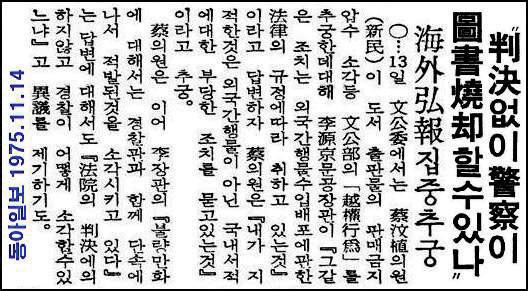 "判決없이 警察이
圖書燒却할수있나"
海外弘報집중추궁
○…13일 文公委에서는 蔡汶植의원
(新民)이 도서 출판물의 판매금지
압수 소각등 文公部의 「越權行爲」를
추궁한데대해 李源京문공장관이 『그같
은 조치는 외국간행물수입배포에관한
法律의 규정에따라 취하고 있는것』
이라고 답변하자 蔡의원은 『내가 지
적한것은 외국간행물이 아닌 국내서적
에대한 부당한 조치를 묻고있는것』
이라고 추궁.
蔡의원은 이어 李장관의 『불량만화
에 대해서는 경찰관과 함께 단속에
나서 적발된것을 소각시키고 있다』
는 답변에 대해서도 『法院의 判決에의
하지않고 경찰이 어떻게 소각할수있
느냐』고 異議를 제기하기도.
동아일보 1975.11.14